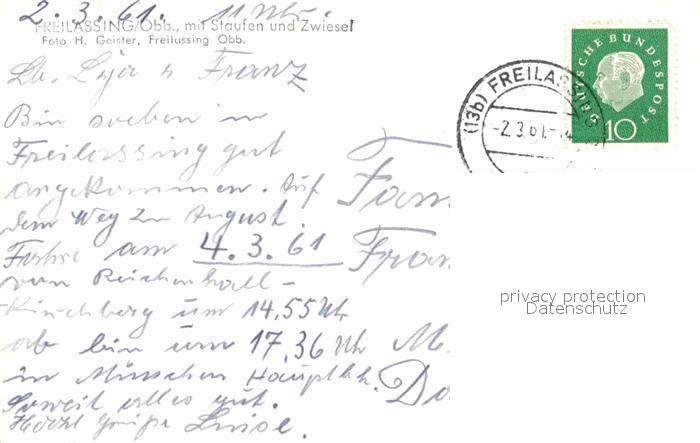 2.3.61. 11 Uhr.
FREILASSING/Obb., mit Staufen und Zwiesel
Foto H. Geister, Freilassing Obb.
Lb. Lya u Franz
Bin soeben in
Freilassing gut
angekommen. Auf
dem Weg zu August.
Fahre am 4.3.61
von Reichenhall-
Kirchberg um 14,55 Uhr
ab bin um 17,36 Uhr
in München Hauptbh.
Soweit alles gut.
Herzl Grüße Luise.
Fam
Fran
M.
Do
(13b) FREILASSING
-2.3.61-
DEUTSCHE BUNDESPOST
10
privacy protection
Datenschutz